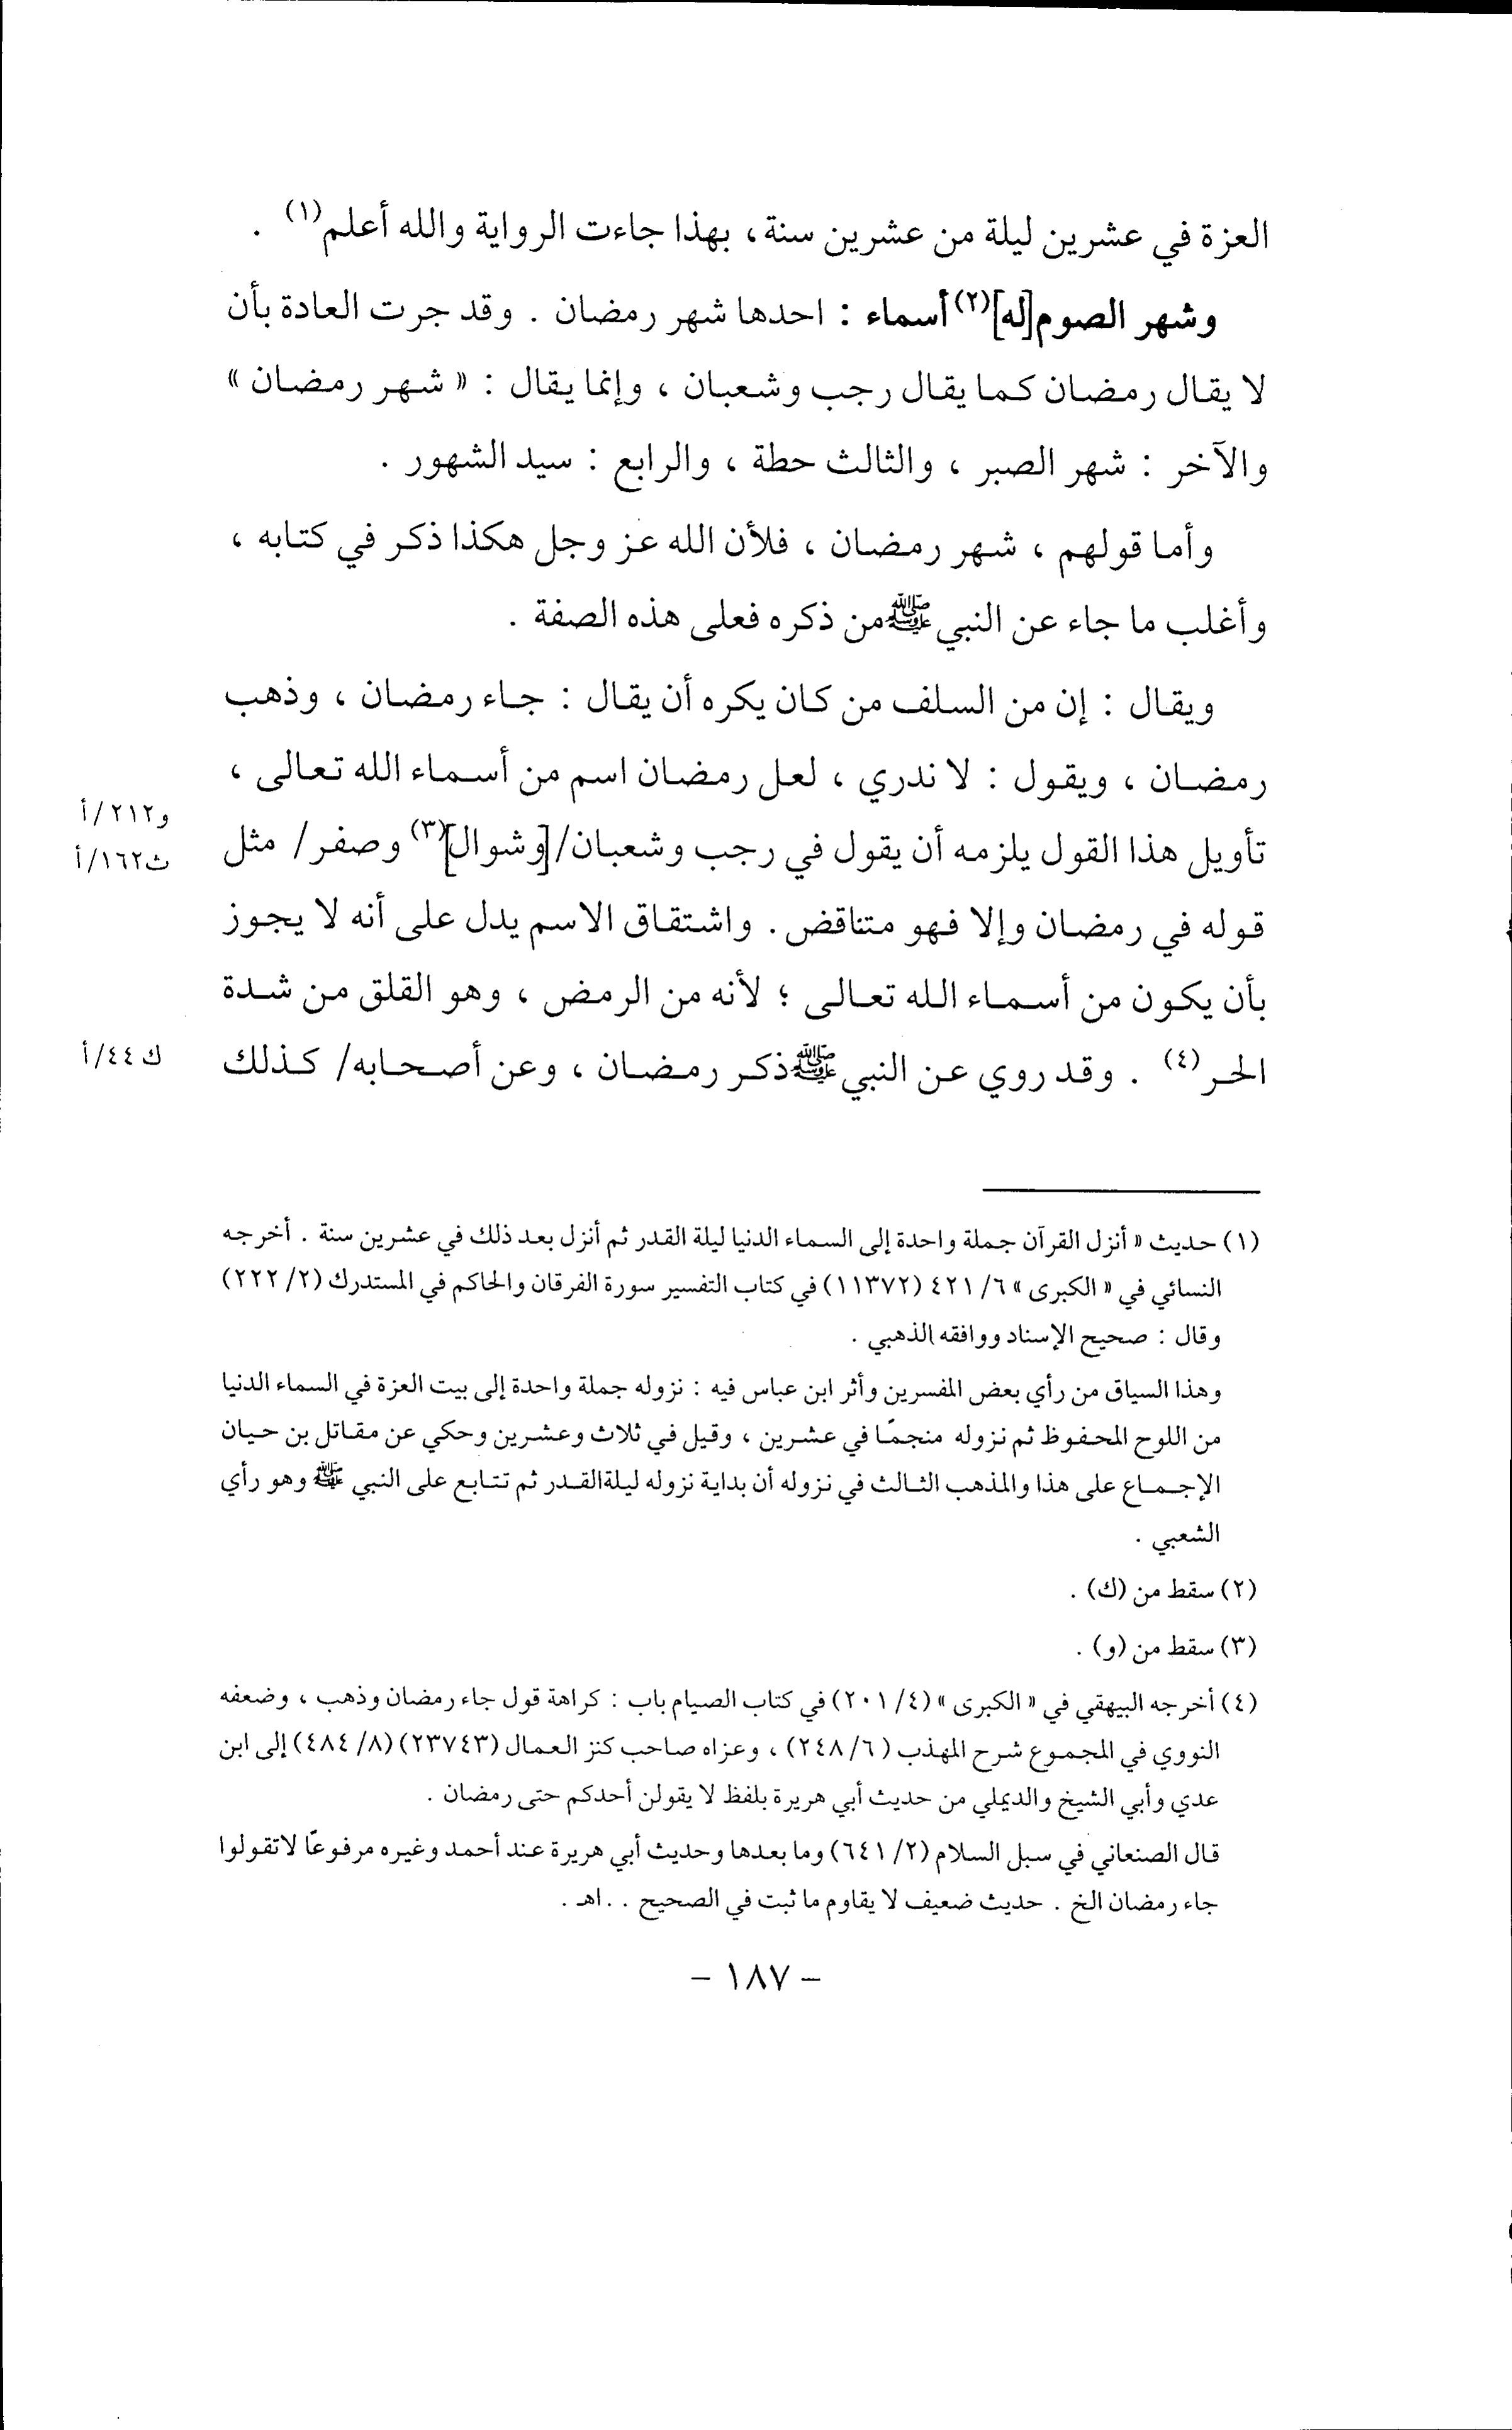 العزة في عشرين ليلة من عشرين سنة، بهذا جاءت الرواية والله أعلم(١) .
وشهر الصوم[له](٢)أسماء : احدها شهر رمضان . وقد جرت العادة بأن
لا يقال رمضان كما يقال رجب وشعبان ، وإنما يقال : « شهر رمضان »
والآخر : شهر الصبر ، والثالث حطة ، والرابع : سيد الشهور .
وأما قولهم ، شهر رمضان ، فلأن الله عز وجل هكذا ذكر في كتابه ،
وأغلب ما جاء عن النبي ﷺ من ذكره فعلى هذه الصفة .
ويقال : إن من السلف من كان يكره أن يقال : جاء رمضان ، وذهب
رمضان ، ويقول : لا ندري ، لعل رمضان اسم من أسماء الله تعالى ،
و٢١٢/أ
تأويل هذا القول يلزمه أن يقول في رجب وشعبان/[وشوال](٣) وصفر/ مثل
ث١٦٢/أ
قوله في رمضان وإلا فهو متناقض. واشتقاق الاسم يدل على أنه لا يجوز
بأن يكون من أسماء الله تعالى ؛ لأنه من الرمض ، وهو القلق من شدة
الحر(٤) . وقد روي عن النبي ﷺ ذكر رمضان ، وعن أصحابه/ كذلك
ك٤٤/أ
(١) حديث « أنزل القرآن جملة واحدة إلى السماء الدنيا ليلة القدر ثم أنزل بعد ذلك في عشرين سنة . أخرجه
النسائي في « الكبرى » ٦/ ٤٢١ (١١٣٧٢) في كتاب التفسير سورة الفرقان والحاكم في المستدرك (٢/ ٢٢٢)
وقال : صحيح الإسناد ووافقه الذهبي .
وهذا السياق من رأي بعض المفسرين وأثر ابن عباس فيه : نزوله جملة واحدة إلى بيت العزة في السماء الدنيا
من اللوح المحفوظ ثم نزوله منجمًا في عشرين ، وقيل في ثلاث وعشرين وحكي عن مقاتل بن حيان
الإجماع على هذا والمذهب الثالث في نزوله أن بداية نزوله ليلةالقدر ثم تتابع على النبي ﷺ وهو رأي
الشعبي .
(٢) سقط من (ك) .
(٣) سقط من (و) .
(٤) أخرجه البيهقي في « الكبرى » (٤/ ٢٠١) في كتاب الصيام باب : كراهة قول جاء رمضان وذهب ، وضعفه
النووي في المجموع شرح المهذب (٦/ ٢٤٨) ، وعزاه صاحب كنز العمال (٢٣٧٤٣) (٨/ ٤٨٤) إلى ابن
عدي وأبي الشيخ والديملي من حديث أبي هريرة بلفظ لا يقولن أحدكم حتى رمضان .
قال الصنعاني في سبل السلام (٢/ ٦٤١) وما بعدها وحديث أبي هريرة عند أحمد وغيره مرفوعًا لاتقولوا
جاء رمضان الخ . حديث ضعيف لا يقاوم ما ثبت في الصحيح . . اهـ .
– ١٨٧ –